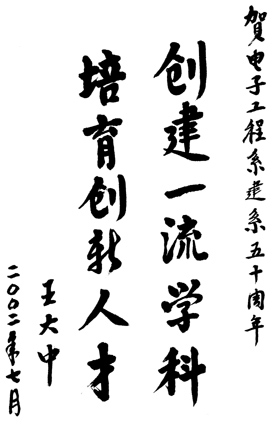 贺电子工程系建系五十周年
创建一流学科
培育创新人才
王大中
二〇〇二年七月